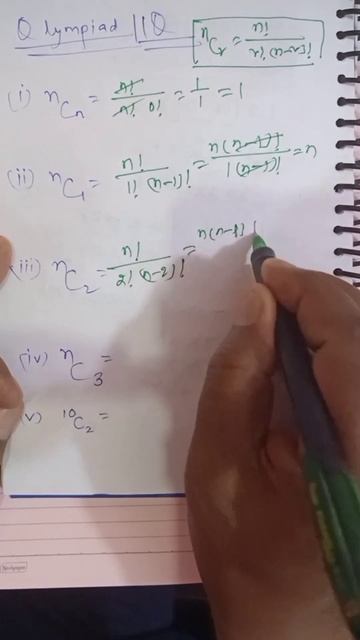 Olympiad IIQ
ⁿCᵣ = n!/r!(n-r)!
(i) ⁿCₙ = n!/n! 0! = 1/1 = 1
(ii) ⁿC₁ = n!/1! (n-1)! = n(n-1)!/1(n-1)! = n
(iii) ⁿC₂ = n!/2! (n-2)! = n(n-1)
(iv) ⁿC₃ =
v) ¹⁰C₂ =